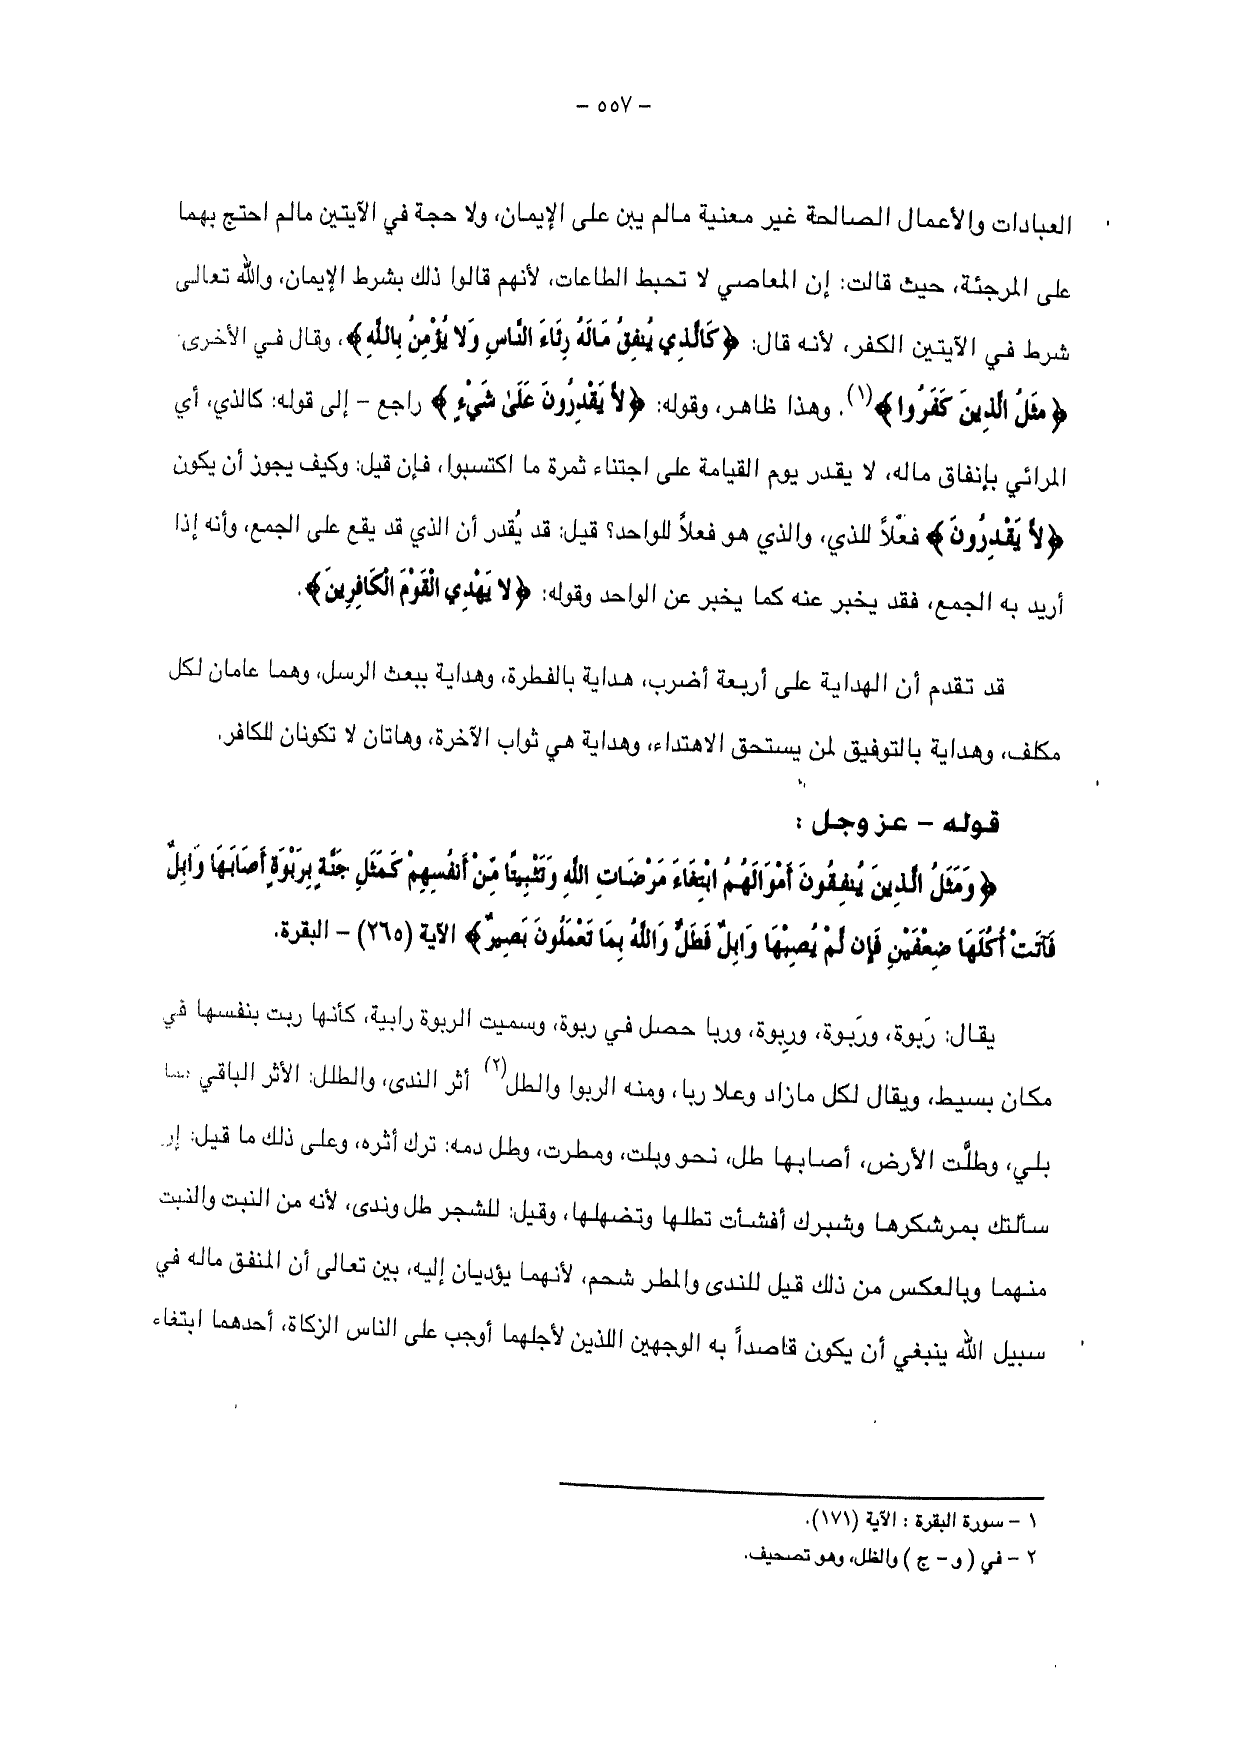 – ٥٥٧ –
العبادات والأعمال الصالحة غير معنية مالم يبن على الإيمان، ولا حجة في الآيتين مالم احتج بهما
على المرجئة، حيث قالت: إن المعاصي لا تحبط الطاعات، لأنهم قالوا ذلك بشرط الإيمان، والله تعالى
شرط في الآيتين الكفر، لأنه قال: ﴿كَالَّذِي يُنفِقُ مَالَهُ رِئَاءَ النَّاسِ وَلا يُؤْمِنُ بِاللَّهِ﴾، وقال في الأخرى
﴿مَثَلُ الَّذِينَ كَفَرُوا﴾(١). وهذا ظاهر، وقوله: ﴿لاَّ يَقْدِرُونَ عَلَىٰ شَيْءٍ﴾ راجع – إلى قوله: كالذي، أي
المرائي بإنفاق ماله، لا يقدر يوم القيامة على اجتناء ثمرة ما اكتسبوا، فإن قيل: وكيف يجوز أن يكون
﴿لاَّ يَقْدِرُونَ﴾ فعلاً للذي، والذي هو فعلاً للواحد؟ قيل: قد يُقدر أن الذي قد يقع على الجمع، وأنه إذا
أريد به الجمع، فقد يخبر عنه كما يخبر عن الواحد وقوله: ﴿لا يَهْدِي الْقَوْمَ الْكَافِرِينَ﴾.
قد تقدم أن الهداية على أربعة أضرب، هداية بالفطرة، وهداية ببعث الرسل، وهما عامان لكل
مكلف، وهداية بالتوفيق لمن يستحق الاهتداء، وهداية هي ثواب الآخرة، وهاتان لا تكونان للكافر.
قوله – عز وجل :
﴿وَمَثَلُ الَّذِينَ يُنفِقُونَ أَمْوَالَهُمُ ابْتِغَاءَ مَرْضَاتِ اللَّهِ وَتَثْبِيتًا مِّنْ أَنفُسِهِمْ كَمَثَلِ جَنَّةٍ بِرَبْوَةٍ أَصَابَهَا وَابِلٌ
فَآتَتْ أُكُلَهَا ضِعْفَيْنِ فَإِن لَّمْ يُصِبْهَا وَابِلٌ فَطَلٌّ وَاللَّهُ بِمَا تَعْمَلُونَ بَصِيرٌ﴾ الآية (٢٦٥) – البقرة.
يقال: رَبوة، ورَبوة، ورِبوة، وربا حصل في ربوة، وسميت الربوة رابية، كأنها ربت بنفسها في
مكان بسيط، ويقال لكل مازاد وعلا ربا، ومنه الربوا والطل(٢) أثر الندى، والطلل: الأثر الباقي
بلي، وطلَّت الأرض، أصابها طل، نحو وبلت، ومطرت، وطل دمه: ترك أثره، وعلى ذلك ما قيل:
سألتك بمرشكرها وشبرك أفشأت تطلها وتضهلها، وقيل: للشجر طل وندى، لأنه من النبت والنبت
منهما وبالعكس من ذلك قيل للندى والمطر شحم، لأنهما يؤديان إليه، بين تعالى أن المنفق ماله في
سبيل الله ينبغي أن يكون قاصداً به الوجهين اللذين لأجلهما أوجب على الناس الزكاة، أحدهما ابتغاء
١ – سورة البقرة : الآية (١٧١).
٢ – في ( و – ج ) والظل، وهو تصحيف.